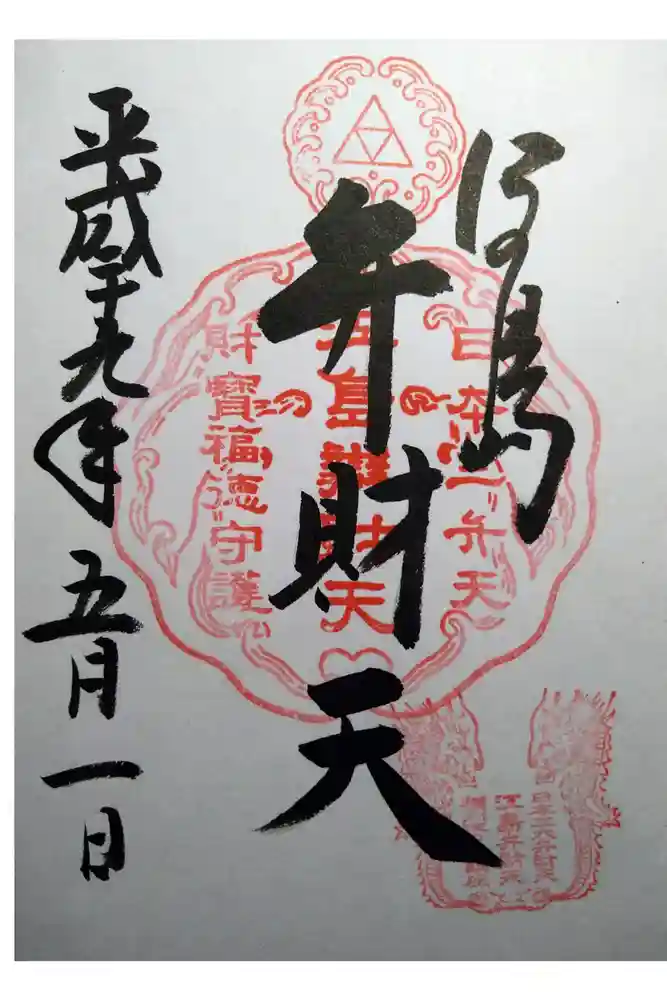 江の島
弁財天
平成十九年五月一日
日本 一弁天
江島辨財天
財寶福徳守護
日本三大弁財天
江島弁財天